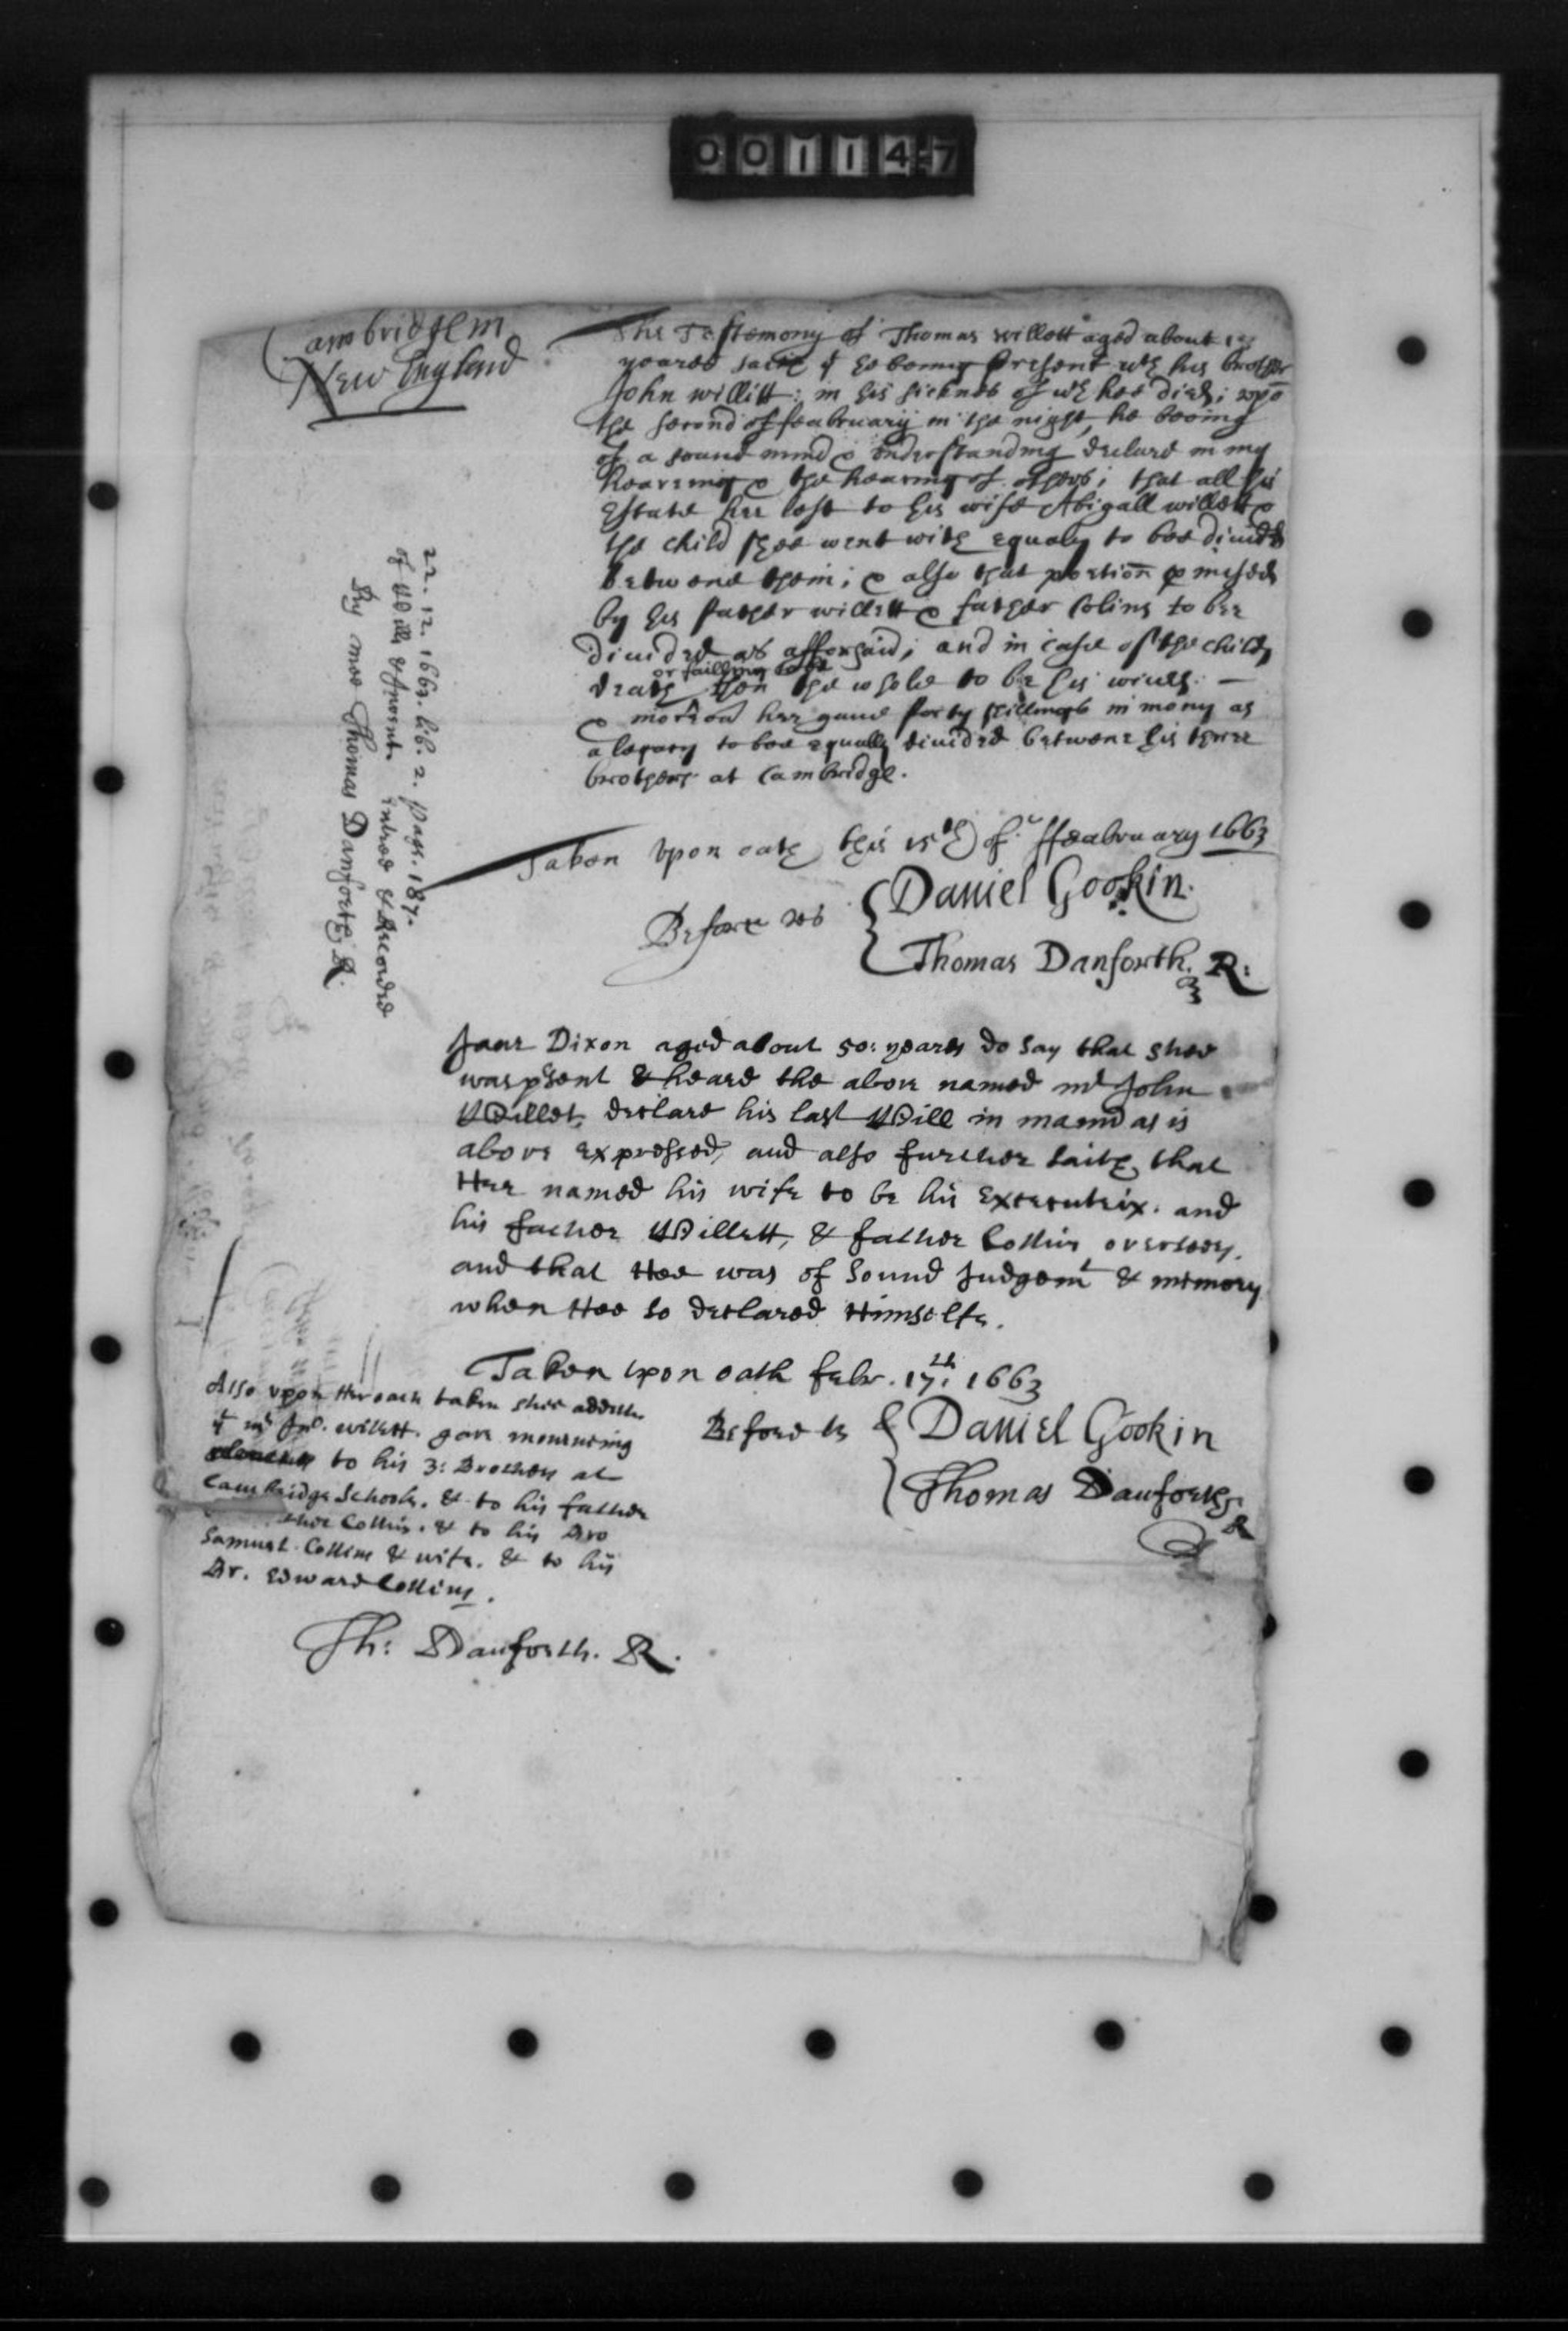 001147
Cambridge in
New England
The Testemony of Thomas Willett aged about
yeares saith yt he being present wth his brother
John willitt: in his sicknes of wch hee died; upō
the second of feabruary in the night, he beeing
of a sound mind & understanding declard in my
hearring & the hearing of others; that all his
Estate hee left to his wife Abigall willett &
the child shee went with equaly to bee diuided
betwene them; & also that portiōn promised
by his father willett & father Colins to bee
diuided as afforsaid; and in case of the childs
or failling to be
death then the whole to be his wiues. —
& moreou hee gaue forty shillings in mony as
a legacy to bee equally diuided betwene his three
brothers at Cambridge.
Taken vpon oath this 15th of ffeabruary 1663
Before us { Daniel Gookin.
Thomas Danforth. R:
22. 12. 1663. Lib. 2. page. 187.
of Wills & Invent. Entred & Recorded
By mee Thomas Danforth, R.
Jane Dixon aged about 50: yeares do say that shee
was psent & heard the above named mr John
Willet, declare his last Will in mannr as is
above expressed, and also further saith, that
Hee named his wife to be his Executrix. and
his father Willett, & father Collins overseers.
and that Hee was of sound Judgemt & memory
when Hee so declared Himselfe.
Taken upon oath febr. 17th 1663
Before us { Daniel Gookin
Thomas Danforth, R
Also vpon her oath taken shee addeth
yt mr Jno. willett. gave mourneing
to his 3: Brothers at
Cambridge Schoole. & to his father
Collins. & to his Bro
Samuel Collins & wife. & to his
Br. Edward Collins.
Th: Danforth. R.